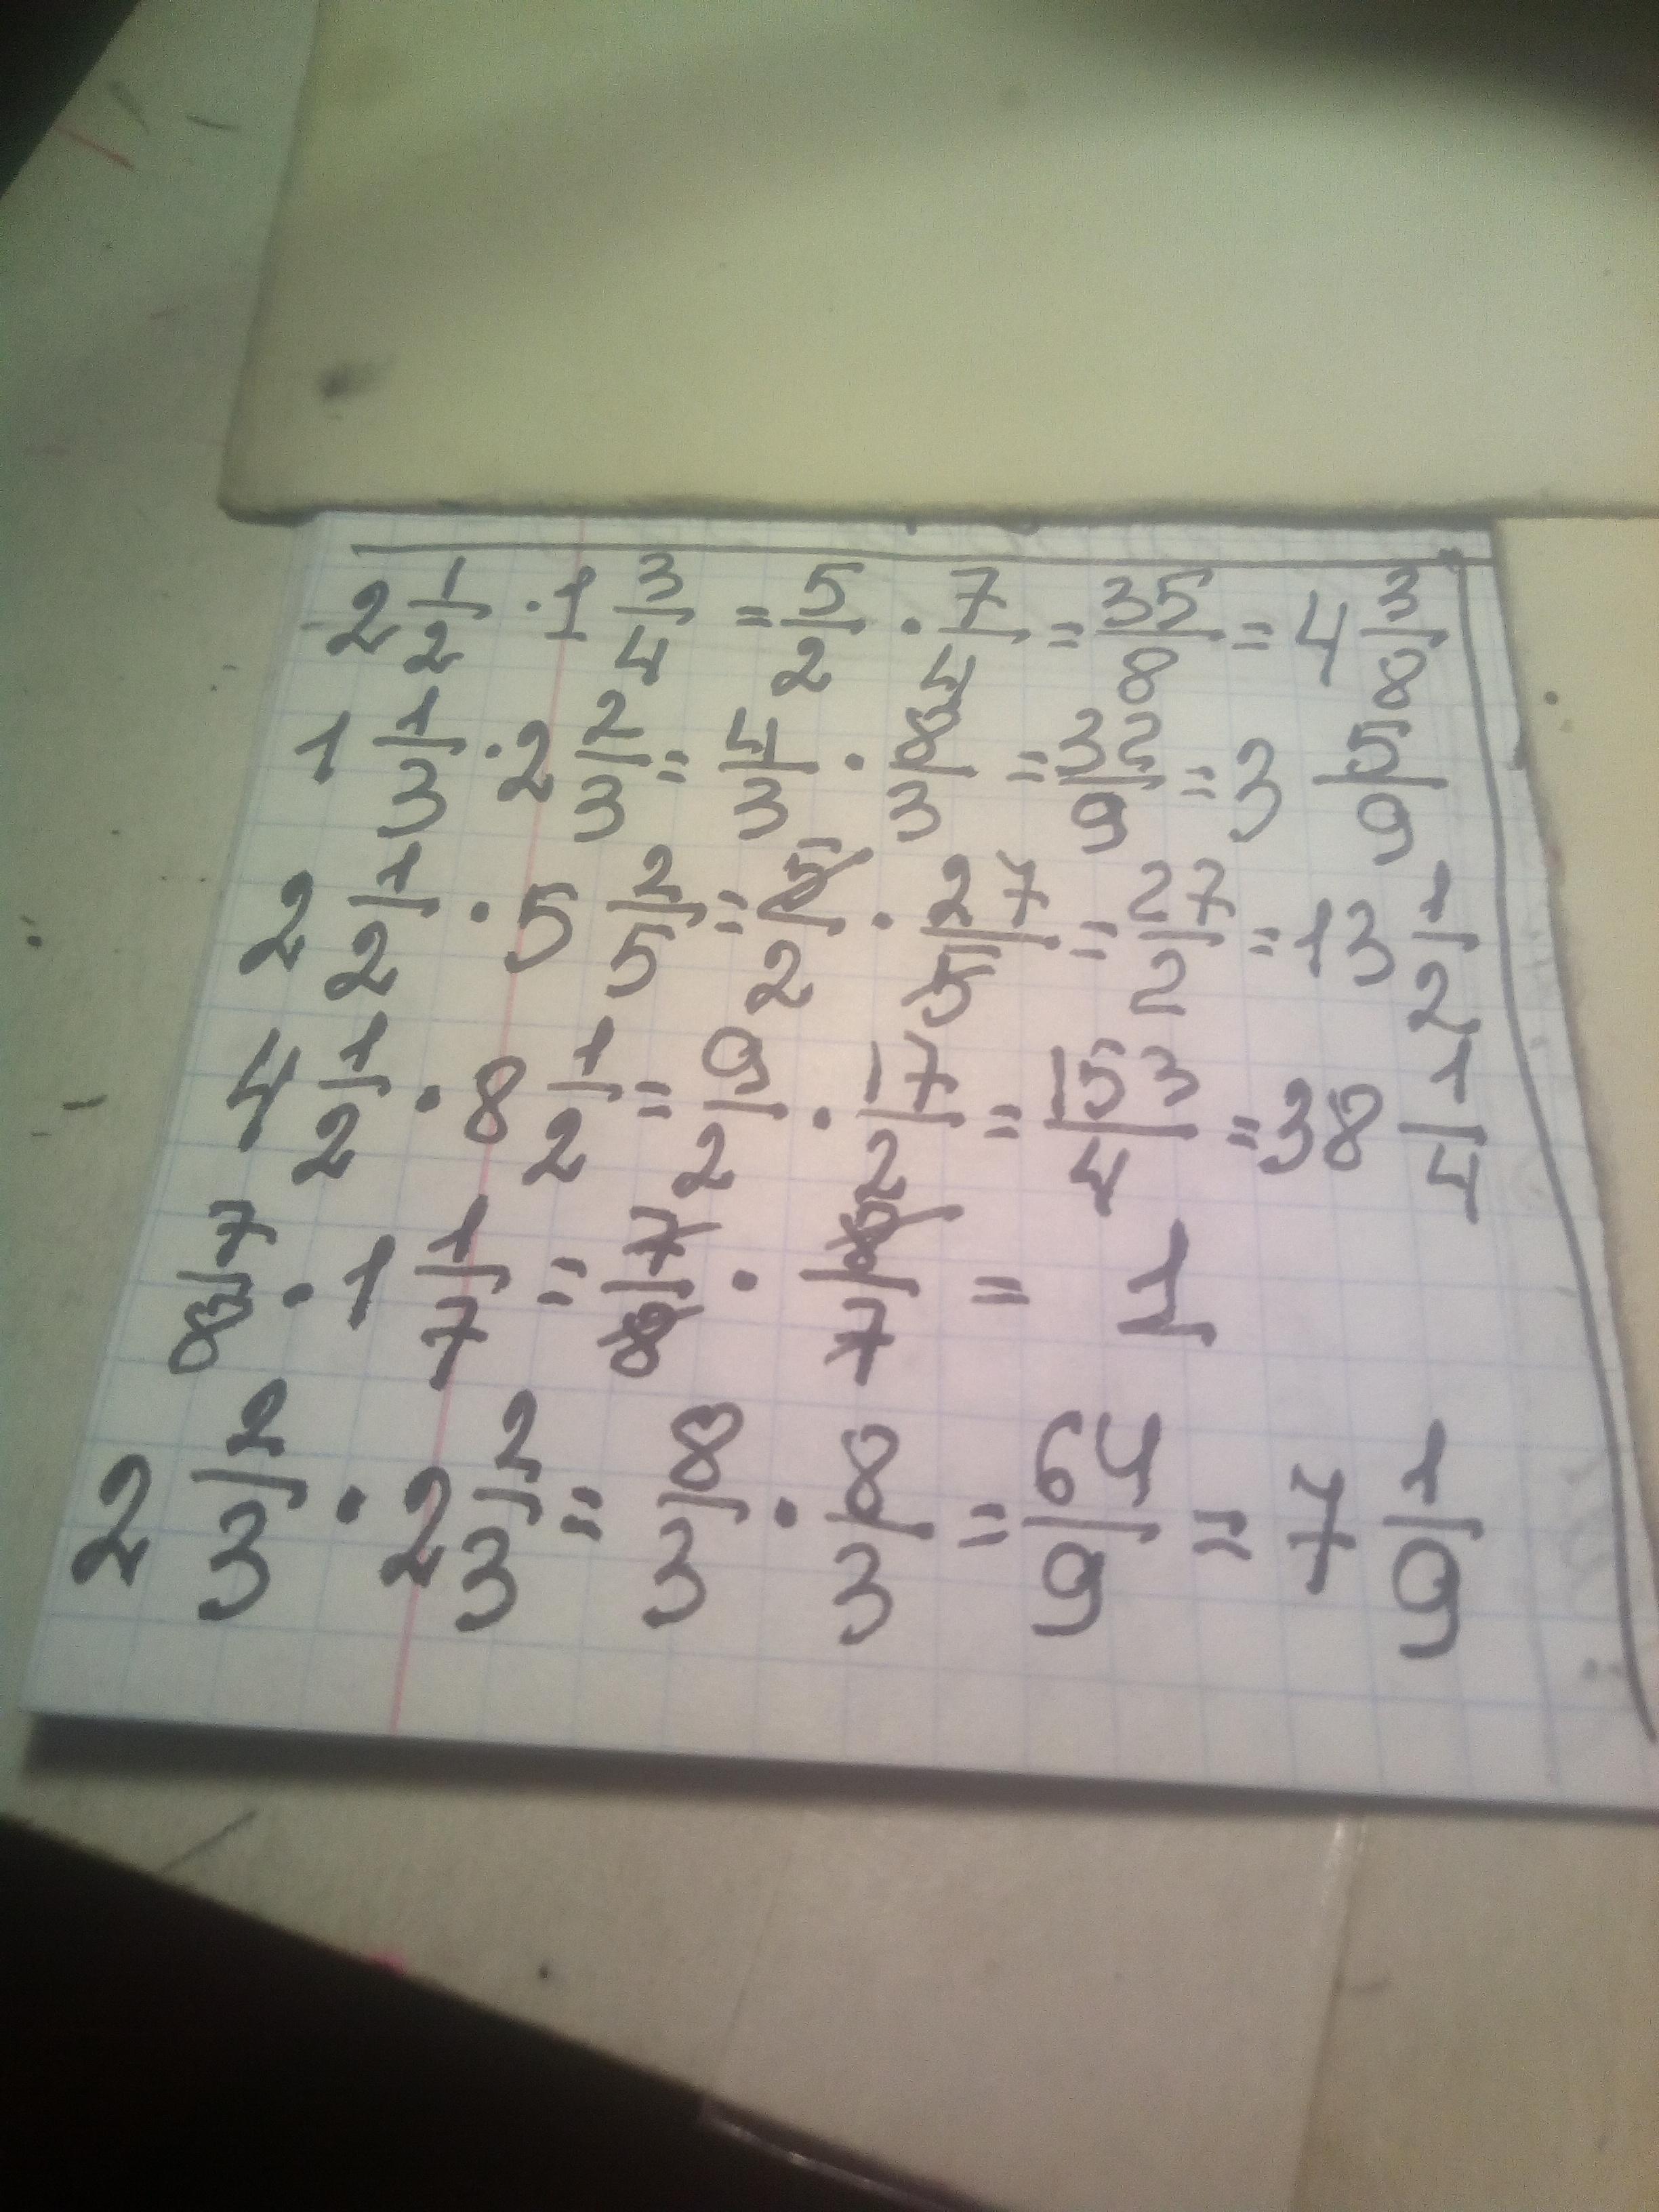 2 1/2 · 1 3/4 = 5/2 · 7/4 = 35/8 = 4 3/8
1 1/3 · 2 2/3 = 4/3 · 8/3 = 32/9 = 3 5/9
2 1/2 · 5 2/5 = 5/2 · 27/5 = 27/2 = 13 1/2
4 1/2 · 8 1/2 = 9/2 · 17/2 = 153/4 = 38 1/4
7/8 · 1 1/7 = 7/8 · 8/7 = 1
2 2/3 · 2 2/3 = 8/3 · 8/3 = 64/9 = 7 1/9